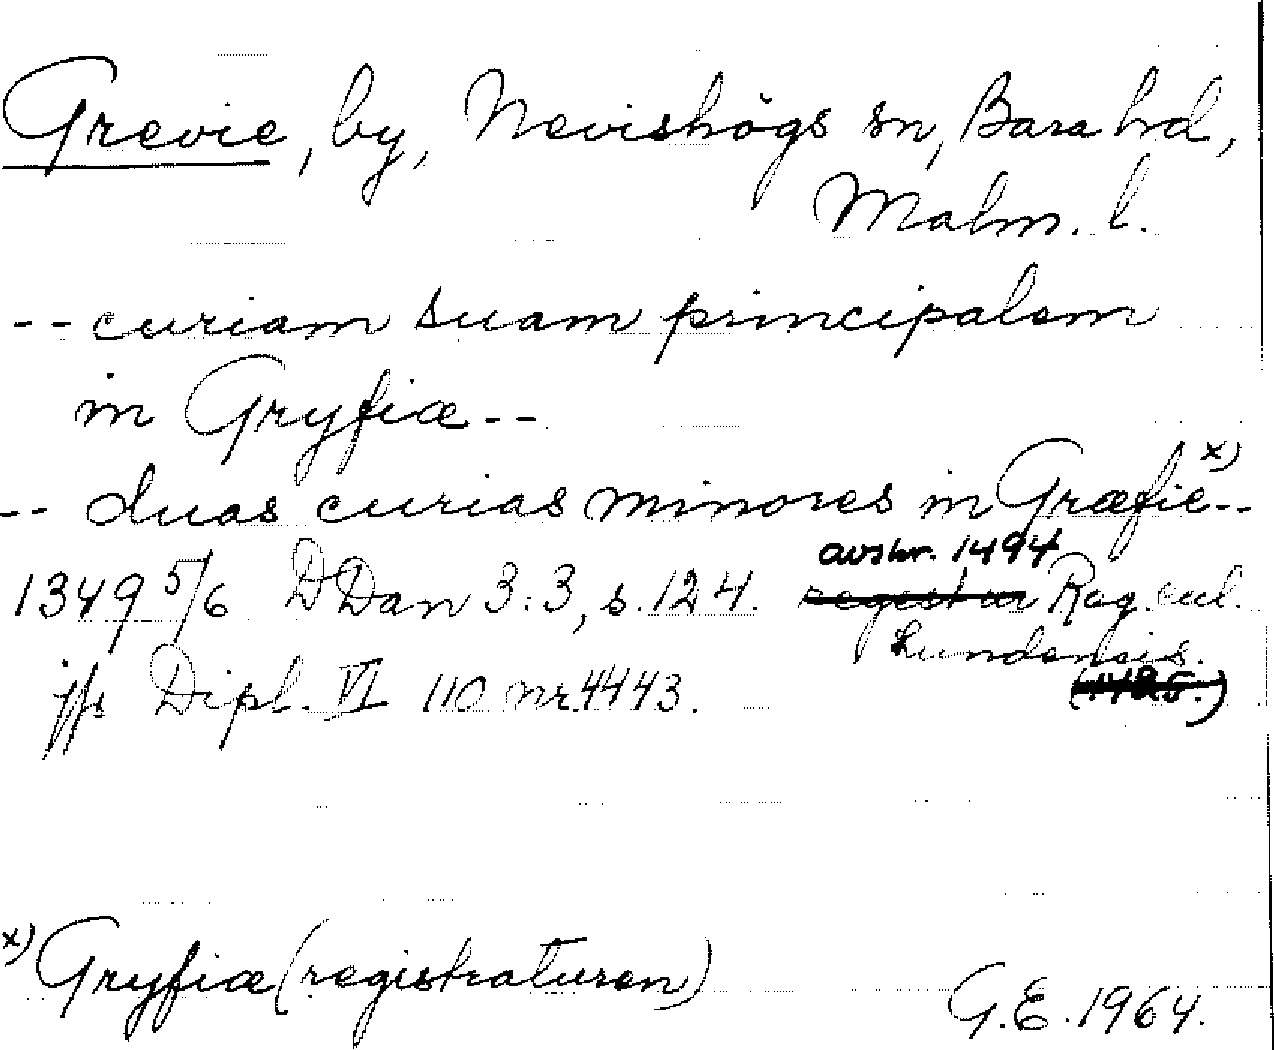 Grevie, by, Nevishögs sn, Bara hd,
Malm. l.
-- curiam suam principalem
in Gryfiæ --
-- duas curias minores in Græfie x) --
avskr. 1494
1349 5/6 DDan 3:3, s. 124. registrur Reg. eccl.
Lundensis.
jfs Dipl. VI 110 nr. 4443. (1425.)
x) Gryfiæ (registraturen)
G.E. 1964.